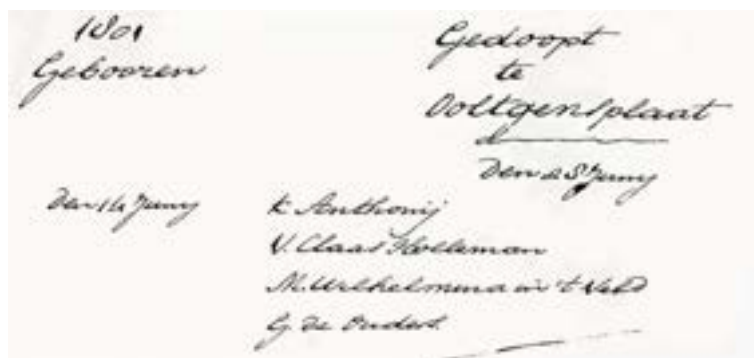 1801
Gebooren
Gedoopt
te
Ooltgensplaat
Den 28 Juny
Den 14 Juny
K Anthonij
V. Claas Holleman
M. Wilhelmina in 't Veld
G. de Ouders.